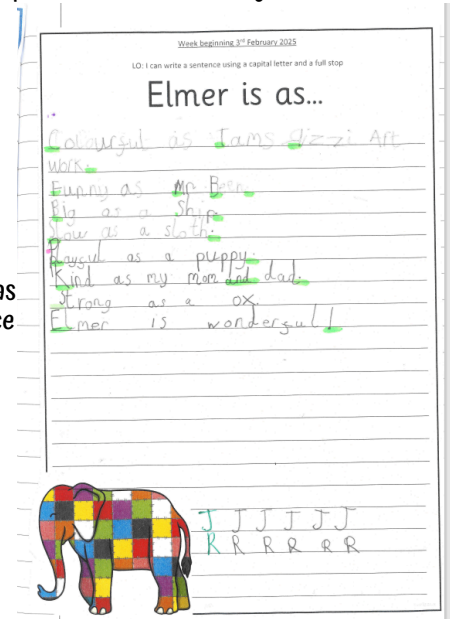 Week beginning 3rd February 2025
LO: I can write a sentence using a capital letter and a full stop
Elmer is as...
Colourful as Jams Art
work.
Funny as Mr Bean.
Big as a Ship.
Slow as a sloth.
Playful as a puppy.
Kind as my mom and dad.
as
Strong as a ox.
Elmer is wonderful!
J J J J J J
R R R R R R